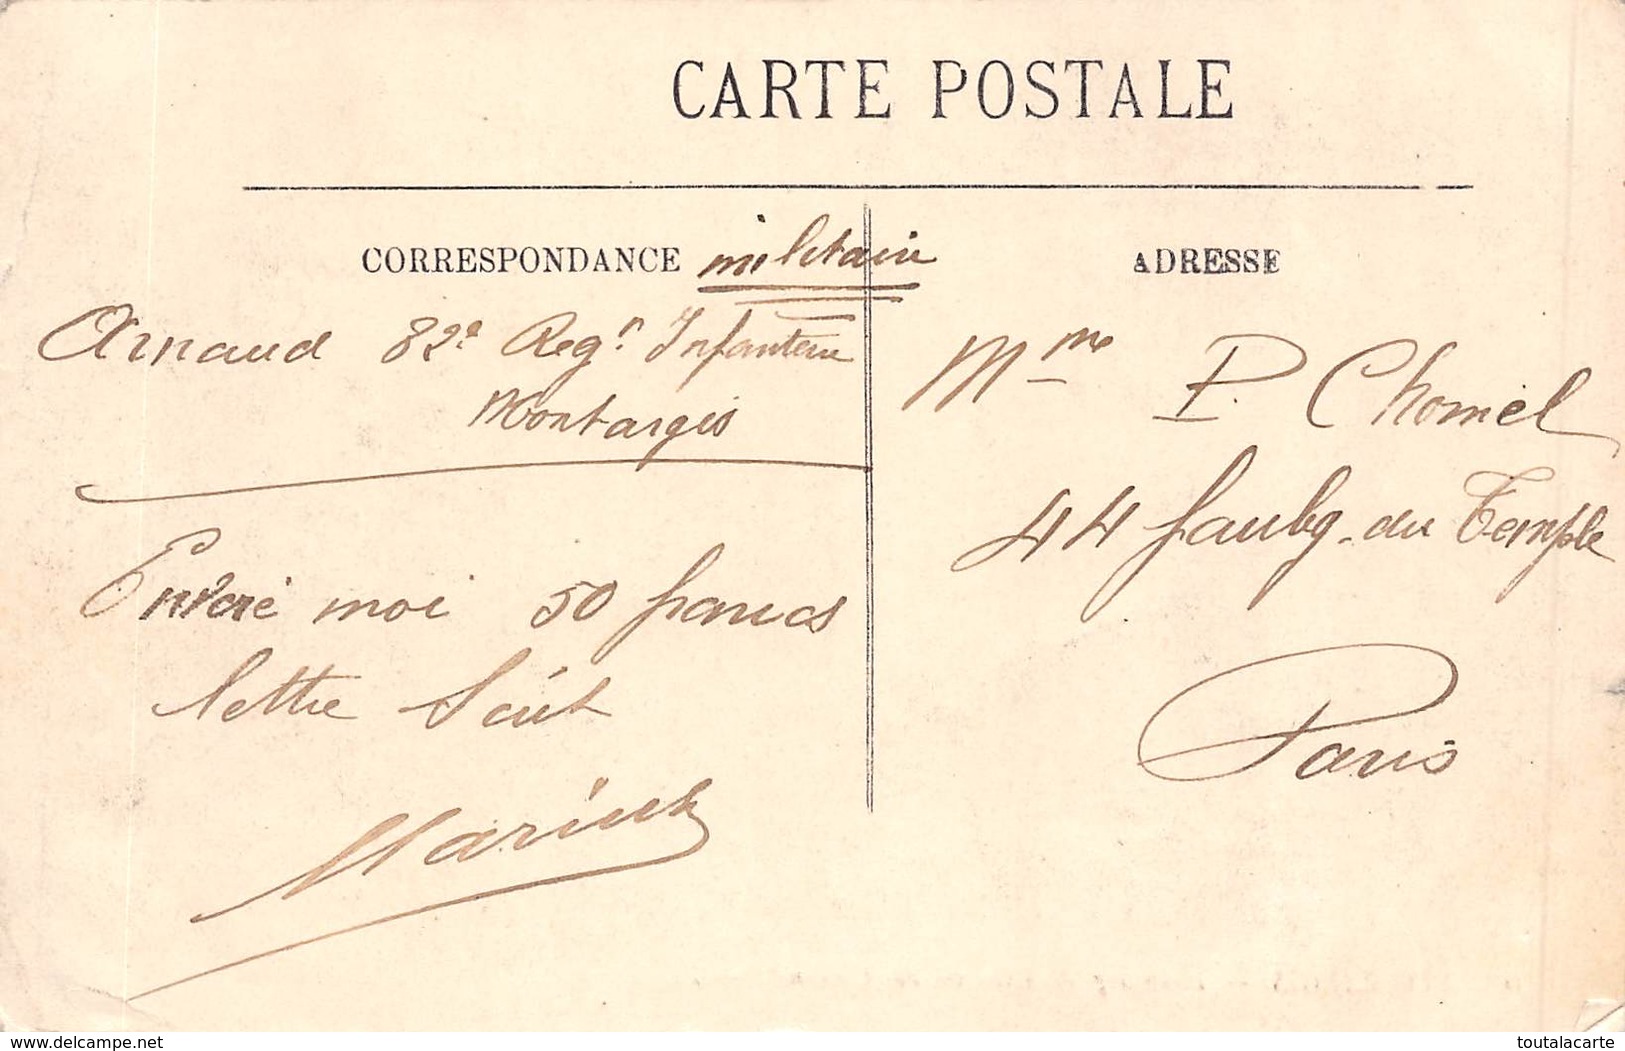 CARTE POSTALE
CORRESPONDANCE militaire
Arnaud 82e Regn Infanterie
Montargis
Envoié moi 50 francs
lettre Suit
Marius
ADRESSE
Mme P. Chomel
44 faubg. du Temple
Paris
delcampe.net
toutalacarte